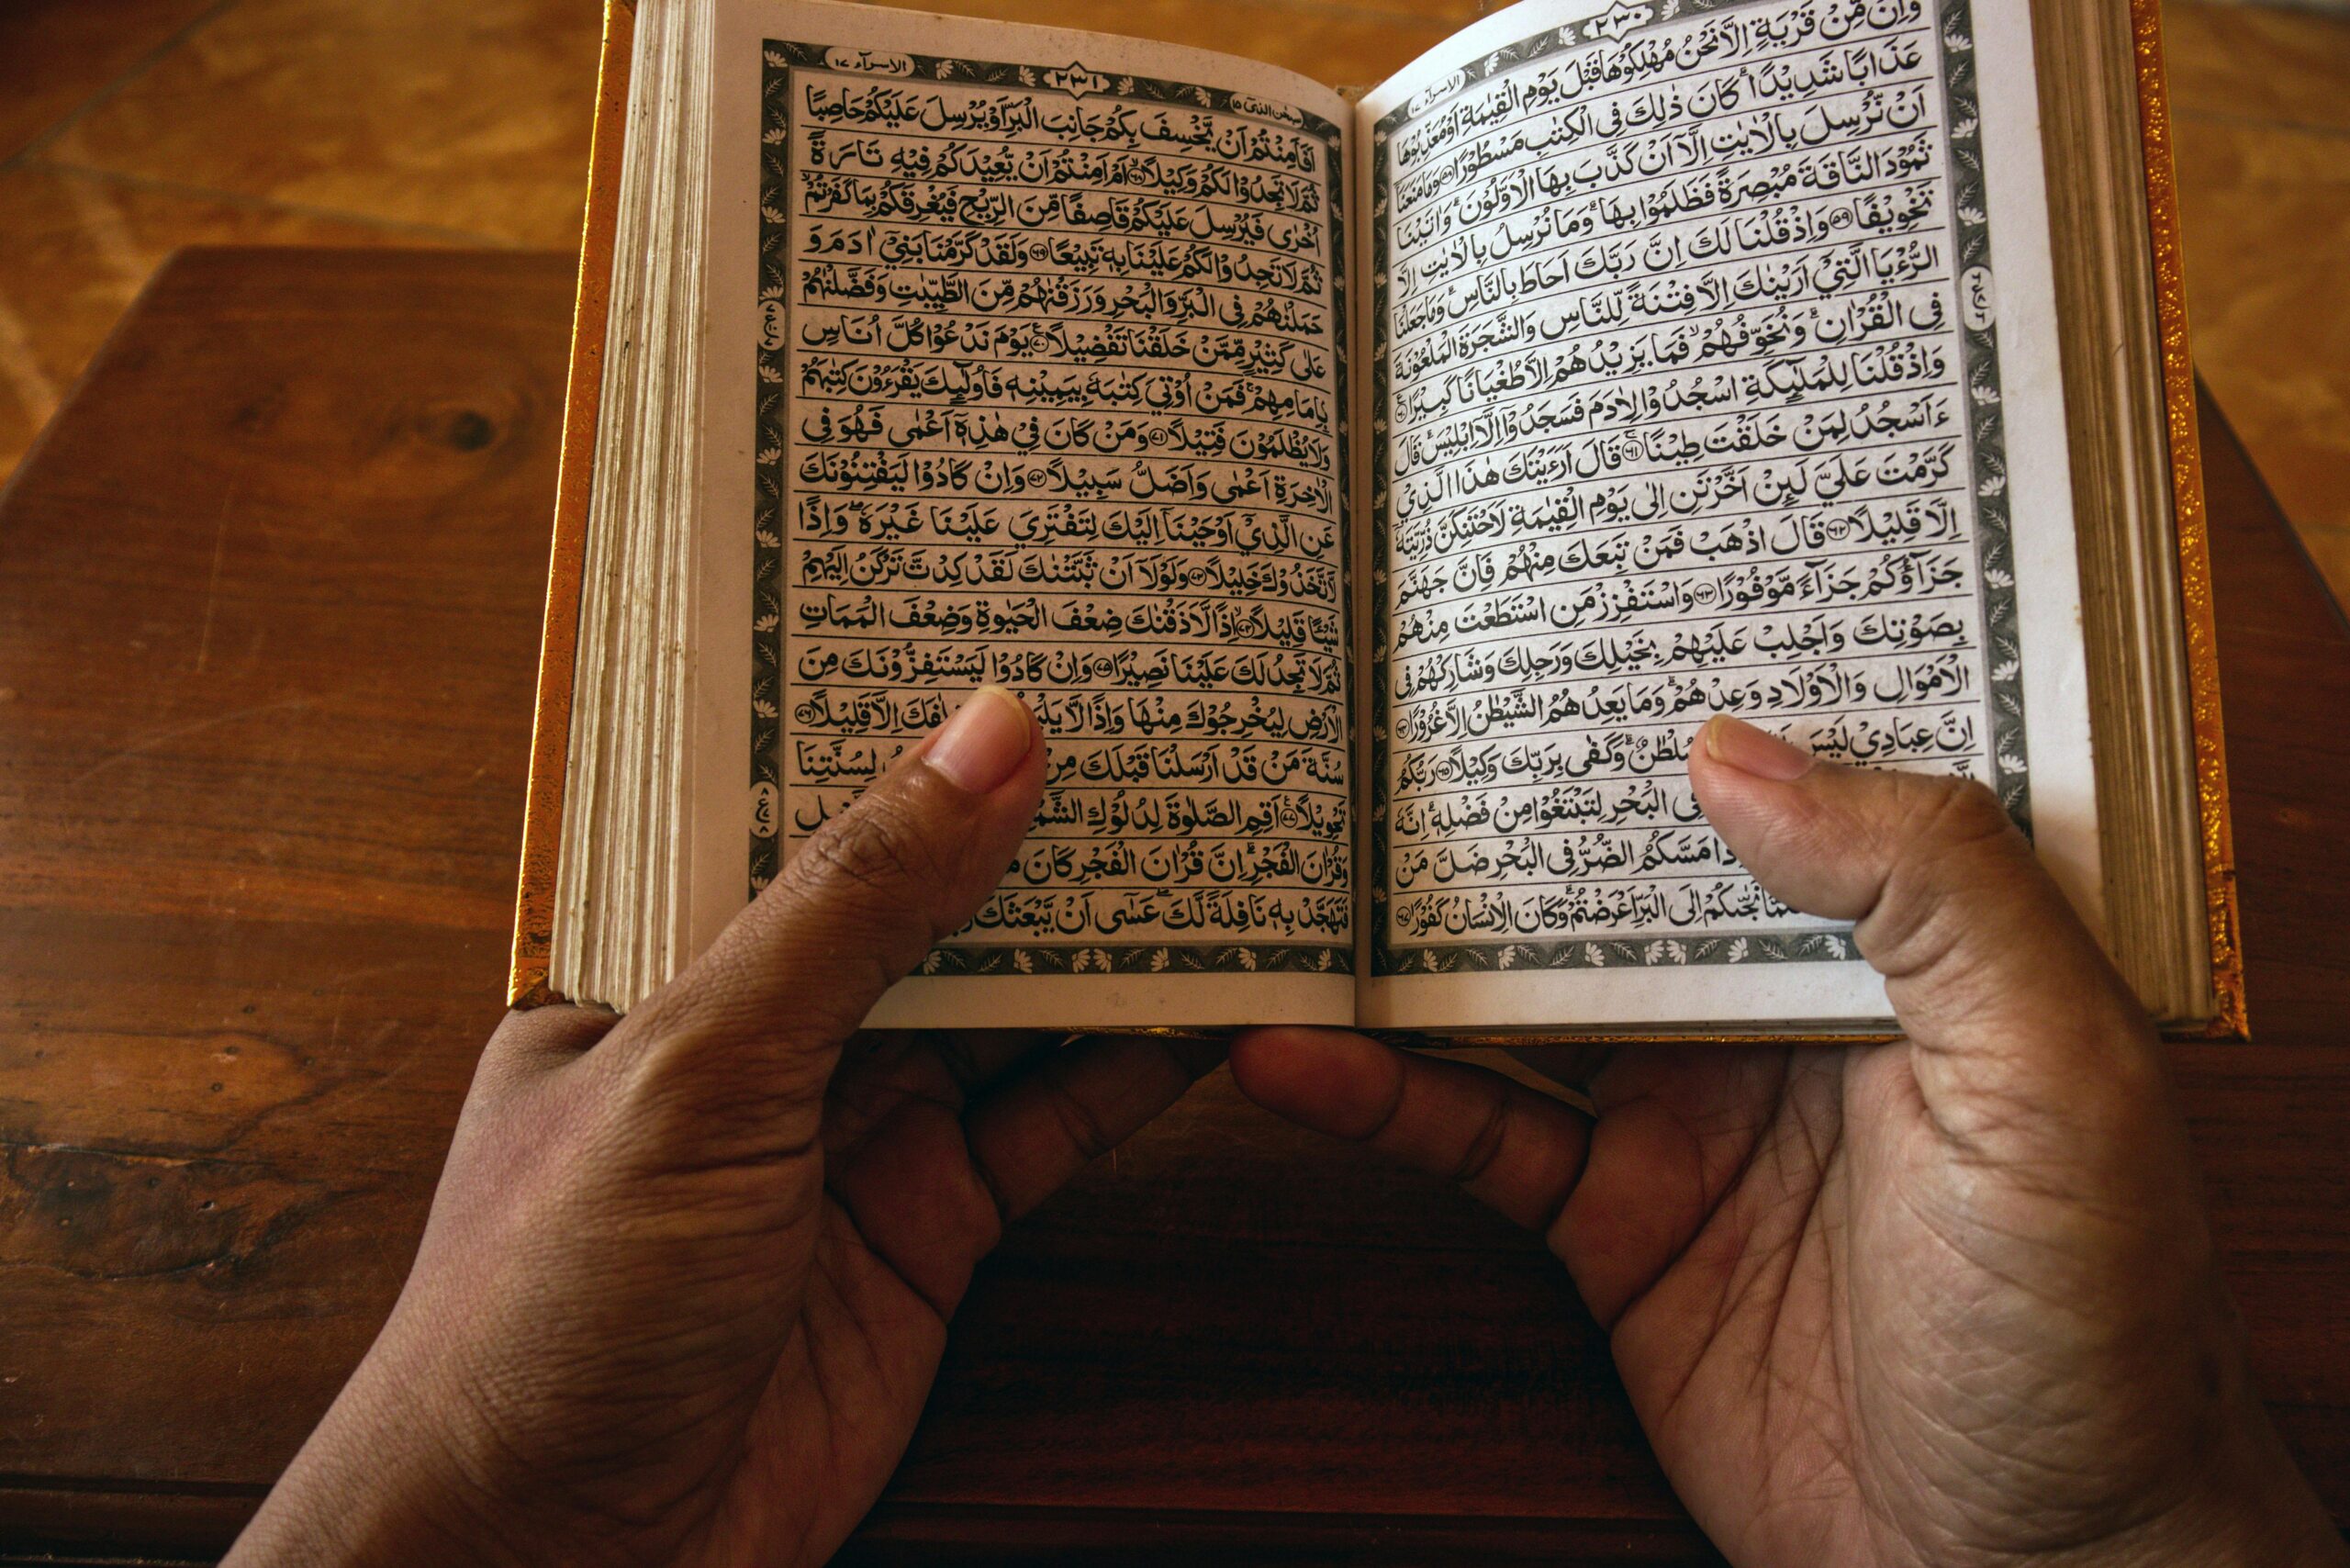 ٢٣٠
الاسرآء ١٧
وَاِنْ مِّنْ قَرْيَةٍ اِلَّا نَحْنُ مُهْلِكُوْهَا قَبْلَ يَوْمِ الْقِيٰمَةِ اَوْ مُعَذِّبُوْهَا
عَذَابًا شَدِيْدًا ۗ كَانَ ذٰلِكَ فِى الْكِتٰبِ مَسْطُوْرًا ٥٨ وَمَا مَنَعَنَآ
اَنْ نُّرْسِلَ بِالْاٰيٰتِ اِلَّآ اَنْ كَذَّبَ بِهَا الْاَوَّلُوْنَ ۗ وَاٰتَيْنَا
ثَمُوْدَ النَّاقَةَ مُبْصِرَةً فَظَلَمُوْا بِهَا ۗ وَمَا نُرْسِلُ بِالْاٰيٰتِ اِلَّا
تَخْوِيْفًا ٥٩ وَاِذْ قُلْنَا لَكَ اِنَّ رَبَّكَ اَحَاطَ بِالنَّاسِ ۗ وَمَا جَعَلْنَا
الرُّءْيَا الَّتِيْٓ اَرَيْنٰكَ اِلَّا فِتْنَةً لِّلنَّاسِ وَالشَّجَرَةَ الْمَلْعُوْنَةَ
فِى الْقُرْاٰنِ ۗ وَنُخَوِّفُهُمْ ۙ فَمَا يَزِيْدُهُمْ اِلَّا طُغْيَانًا كَبِيْرًا ٦٠
وَاِذْ قُلْنَا لِلْمَلٰۤىِٕكَةِ اسْجُدُوْا لِاٰدَمَ فَسَجَدُوْٓا اِلَّآ اِبْلِيْسَ ۗ قَالَ
ءَاَسْجُدُ لِمَنْ خَلَقْتَ طِيْنًا ٦١ قَالَ اَرَءَيْتَكَ هٰذَا الَّذِيْ
كَرَّمْتَ عَلَيَّ لَىِٕنْ اَخَّرْتَنِ اِلٰى يَوْمِ الْقِيٰمَةِ لَاَحْتَنِكَنَّ ذُرِّيَّتَهٗٓ
اِلَّا قَلِيْلًا ٦٢ قَالَ اذْهَبْ فَمَنْ تَبِعَكَ مِنْهُمْ فَاِنَّ جَهَنَّمَ
جَزَآؤُكُمْ جَزَآءً مَّوْفُوْرًا ٦٣ وَاسْتَفْزِزْ مَنِ اسْتَطَعْتَ مِنْهُمْ
بِصَوْتِكَ وَاَجْلِبْ عَلَيْهِمْ بِخَيْلِكَ وَرَجِلِكَ وَشَارِكْهُمْ فِى
الْاَمْوَالِ وَالْاَوْلَادِ وَعِدْهُمْ ۗ وَمَا يَعِدُهُمُ الشَّيْطٰنُ اِلَّا غُرُوْرًا ٦٤
اِنَّ عِبَادِيْ لَيْسَ سُلْطٰنٌ ۗ وَكَفٰى بِرَبِّكَ وَكِيْلًا ٦٥ رَبُّكُمُ
فِى الْبَحْرِ لِتَبْتَغُوْا مِنْ فَضْلِهٖ ۗ اِنَّهٗ
مَسَّكُمُ الضُّرُّ فِى الْبَحْرِ ضَلَّ مَنْ
نَجّٰىكُمْ اِلَى الْبَرِّ اَعْرَضْتُمْ ۗ وَكَانَ الْاِنْسَانُ كَفُوْرًا ٦٧
سبحن الذى ١٥
٢٣١
الاسرآء ١٧
اَفَاَمِنْتُمْ اَنْ يَّخْسِفَ بِكُمْ جَانِبَ الْبَرِّ اَوْ يُرْسِلَ عَلَيْكُمْ حَاصِبًا
ثُمَّ لَا تَجِدُوْا لَكُمْ وَكِيْلًا ۙ ٦٨ اَمْ اَمِنْتُمْ اَنْ يُّعِيْدَكُمْ فِيْهِ تَارَةً
اُخْرٰى فَيُرْسِلَ عَلَيْكُمْ قَاصِفًا مِّنَ الرِّيْحِ فَيُغْرِقَكُمْ بِمَا كَفَرْتُمْ ۙ
ثُمَّ لَا تَجِدُوْا لَكُمْ عَلَيْنَا بِهٖ تَبِيْعًا ٦٩ وَلَقَدْ كَرَّمْنَا بَنِيْٓ اٰدَمَ وَ
حَمَلْنٰهُمْ فِى الْبَرِّ وَالْبَحْرِ وَرَزَقْنٰهُمْ مِّنَ الطَّيِّبٰتِ وَفَضَّلْنٰهُمْ
عَلٰى كَثِيْرٍ مِّمَّنْ خَلَقْنَا تَفْضِيْلًا ٧٠ يَوْمَ نَدْعُوْا كُلَّ اُنَاسٍ
بِاِمَامِهِمْ ۚ فَمَنْ اُوْتِيَ كِتٰبَهٗ بِيَمِيْنِهٖ فَاُولٰۤىِٕكَ يَقْرَءُوْنَ كِتٰبَهُمْ
وَلَا يُظْلَمُوْنَ فَتِيْلًا ٧١ وَمَنْ كَانَ فِيْ هٰذِهٖٓ اَعْمٰى فَهُوَ فِى
الْاٰخِرَةِ اَعْمٰى وَاَضَلُّ سَبِيْلًا ٧٢ وَاِنْ كَادُوْا لَيَفْتِنُوْنَكَ
عَنِ الَّذِيْٓ اَوْحَيْنَآ اِلَيْكَ لِتَفْتَرِيَ عَلَيْنَا غَيْرَهٗ ۖ وَاِذًا
لَّاتَّخَذُوْكَ خَلِيْلًا ٧٣ وَلَوْلَآ اَنْ ثَبَّتْنٰكَ لَقَدْ كِدْتَّ تَرْكَنُ اِلَيْهِمْ
شَيْـًٔا قَلِيْلًا ۙ ٧٤ اِذًا لَّاَذَقْنٰكَ ضِعْفَ الْحَيٰوةِ وَضِعْفَ الْمَمَاتِ
ثُمَّ لَا تَجِدُ لَكَ عَلَيْنَا نَصِيْرًا ٧٥ وَاِنْ كَادُوْا لَيَسْتَفِزُّوْنَكَ مِنَ
الْاَرْضِ لِيُخْرِجُوْكَ مِنْهَا وَاِذًا لَّا اِلَّا قَلِيْلًا ٧٦
سُنَّةَ مَنْ قَدْ اَرْسَلْنَا قَبْلَكَ مِنْ لِسُنَّتِنَا
تَحْوِيْلًا ٧٧ اَقِمِ الصَّلٰوةَ لِدُلُوْكِ
وَقُرْاٰنَ الْفَجْرِ ۗ اِنَّ قُرْاٰنَ الْفَجْرِ كَانَ
فَتَهَجَّدْ بِهٖ نَافِلَةً لَّكَ ۖ عَسٰٓى اَنْ يَّبْعَثَكَ